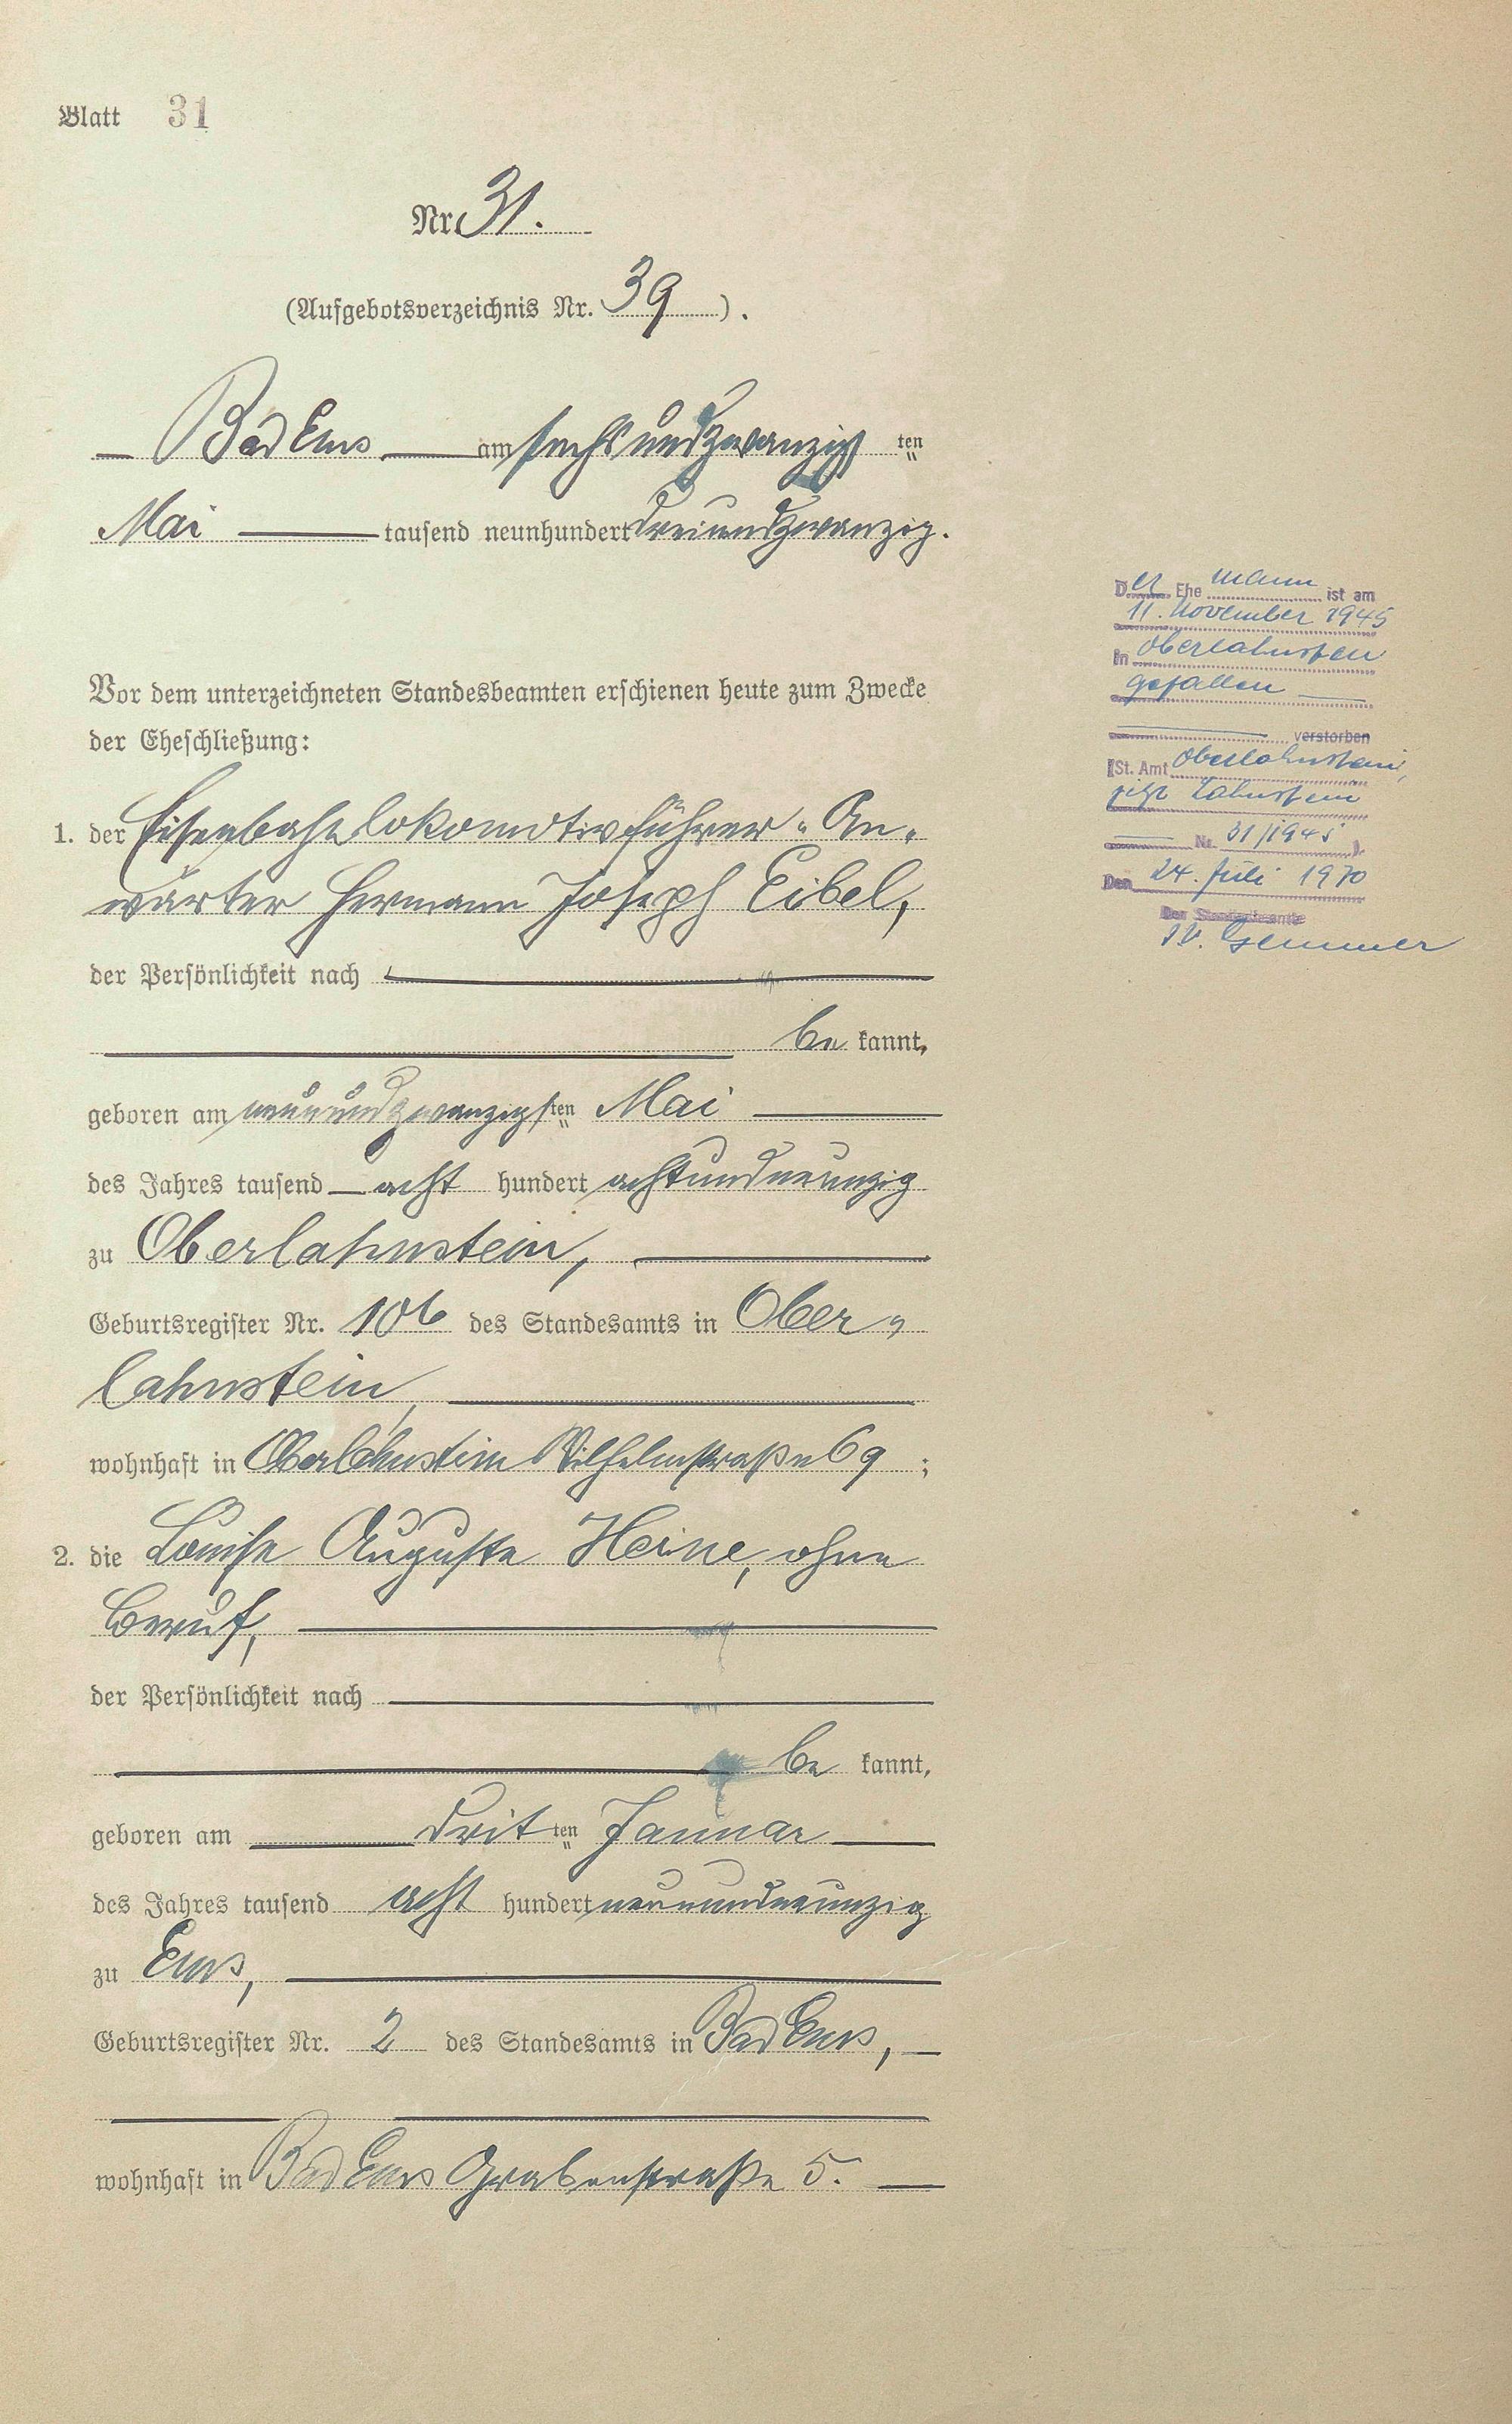 Blatt 31
Nr. 31.
(Aufgebotsverzeichnis Nr. 39).
Bad Ems am sechsundzwanzigsten
Mai tausend neunhundert dreiundzwanzig.
Vor dem unterzeichneten Standesbeamten erschienen heute zum Zwecke
der Eheschließung:
1. der Eisenbahnlokomotivführer-An-
wärter Hermann Joseph Eibel,
der Persönlichkeit nach
be kannt,
geboren am neunundzwanzigsten Mai
des Jahres tausend acht hundert achtundneunzig
zu Oberlahnstein,
Geburtsregister Nr. 106 des Standesamts in Ober-
lahnstein,
wohnhaft in Oberlahnstein Wilhelmstraße 69;
2. die Louise Auguste Heine, ohne
Beruf,
der Persönlichkeit nach
be kannt,
geboren am dritten Januar
des Jahres tausend acht hundert neunundneunzig
zu Ems,
Geburtsregister Nr. 2 des Standesamts in Bad Ems,
wohnhaft in Bad Ems Grabenstraße 5.
Der Ehemann ist am
11. November 1945
in Oberlahnstein
gefallen
verstorben
(St. Amt Oberlahnstein,
jetzt Lahnstein
Nr. 31/1945)
Den 24. Juli 1970
Der Standesbeamte
I.V. Gemmer